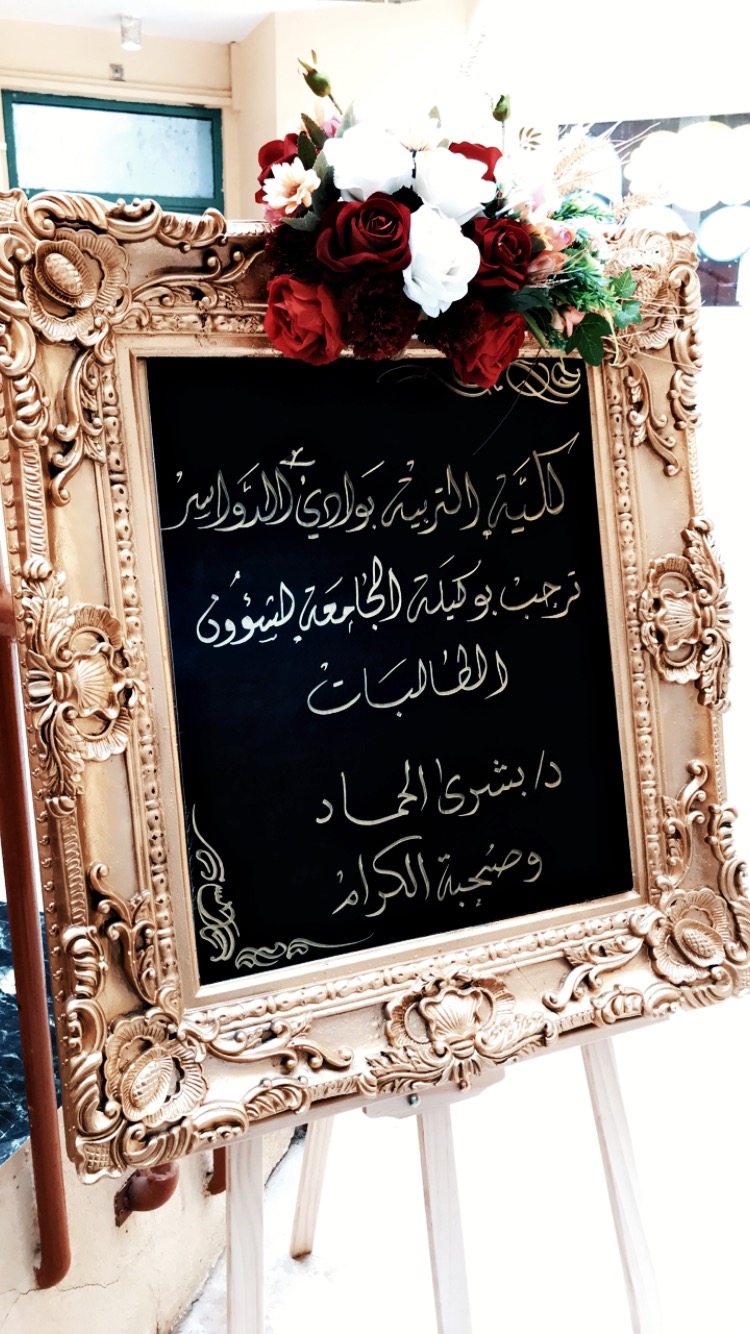 لكليَّة التربية بَوادي الدَّواسِر
ترحبْ بوكيلَة الجامعَة لشؤُون
الطالبَات
د/ بشرى الحماد
وصُحبة الكرامْ